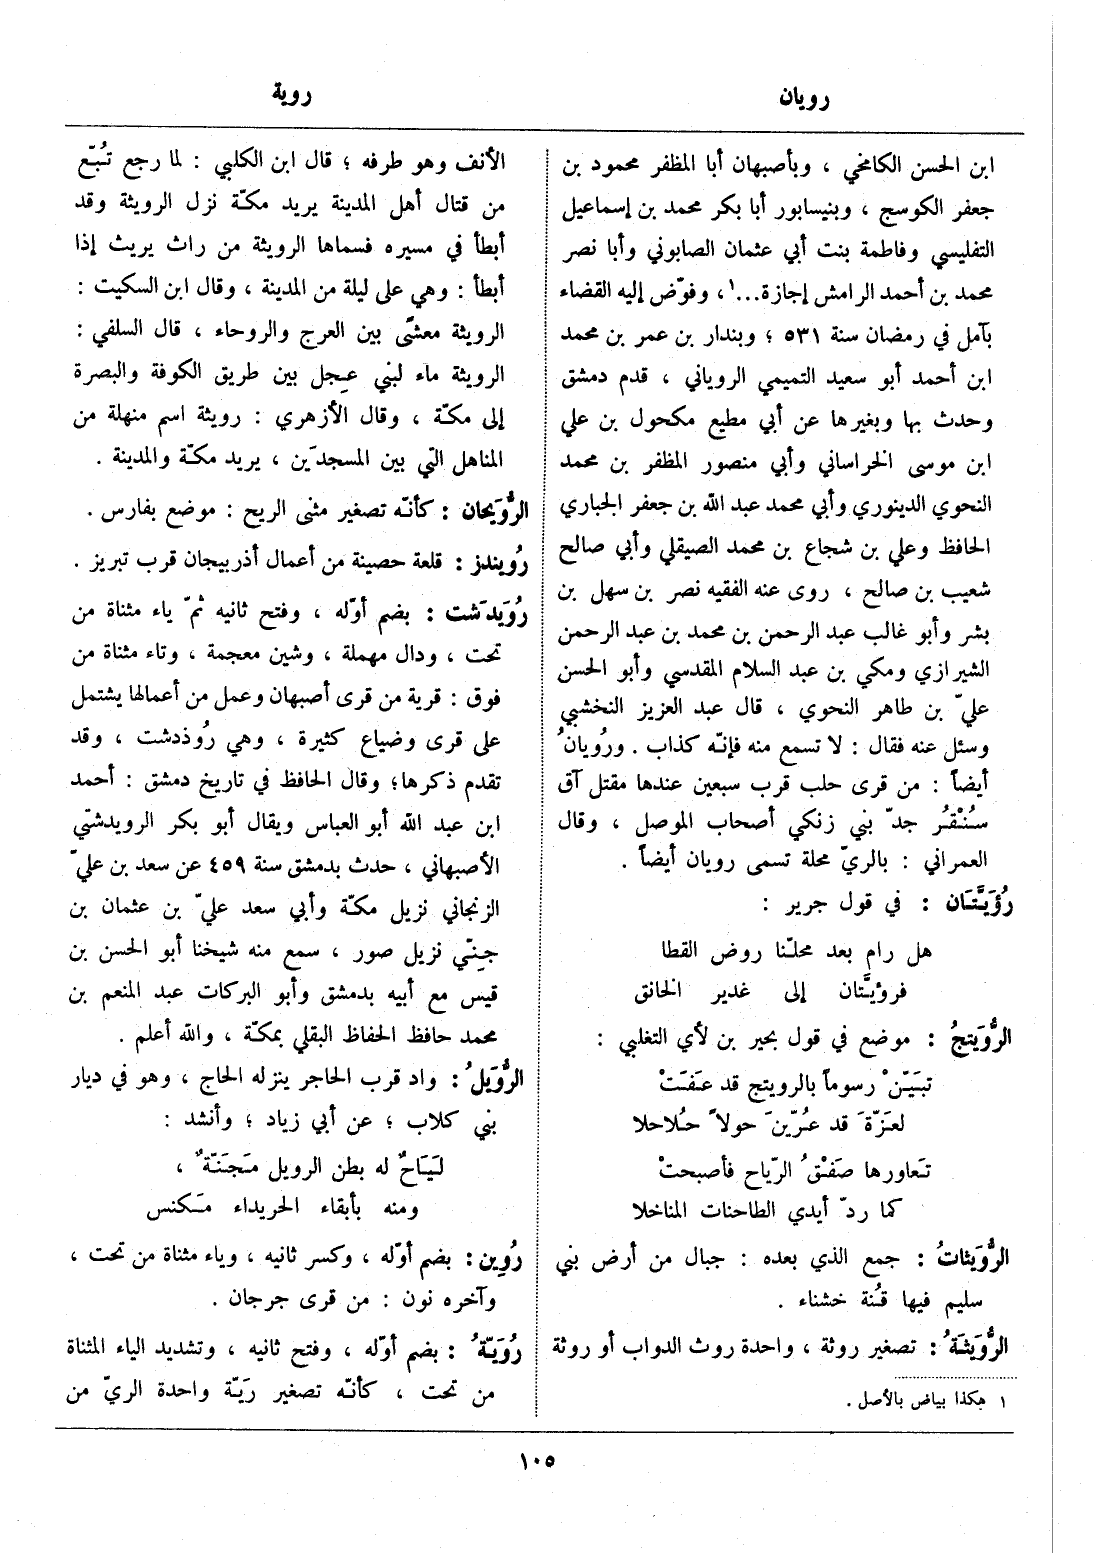 رويان
روية
ابن الحسن الكامخي ، وبأصبهان أبا المظفر محمود بن
جعفر الكوسج ، وبنيسابور أبا بكر محمد بن إسماعيل
التفليسي وفاطمة بنت أبي عثمان الصابوني وأبا نصر
محمد بن أحمد الرامش إجازة...١، وفوّض إليه القضاء
بآمل في رمضان سنة ٥٣١ ؛ وبندار بن عمر بن محمد
ابن أحمد أبو سعيد التميمي الروياني ، قدم دمشق
وحدث بها وبغيرها عن أبي مطيع مكحول بن علي
ابن موسى الخراساني وأبي منصور المظفر بن محمد
النحوي الدينوري وأبي محمد عبد الله بن جعفر الجباري
الحافظ وعلي بن شجاع بن محمد الصيقلي وأبي صالح
شعيب بن صالح ، روى عنه الفقيه نصر بن سهل بن
بشر وأبو غالب عبد الرحمن بن محمد بن عبد الرحمن
الشيرازي ومكي بن عبد السلام المقدسي وأبو الحسن
عليّ بن طاهر النحوي ، قال عبد العزيز النخشبي
وسئل عنه فقال : لا تسمع منه فإنّه كذاب . ورُويانُ
أيضاً : من قرى حلب قرب سبعين عندها مقتل آق
سُنْقُر جدّ بني زنكي أصحاب الموصل ، وقال
العمراني : بالريّ محلة تسمى رويان أيضاً .
رُؤيَّتَان : في قول جرير :
هل رام بعد محلّنا روض القطا
فرؤيَّتان إلى غدير الخانق
الرُّوَيتجُ : موضع في قول بحير بن لأي التغلبي :
تبَيّنْ رسوماً بالرويتج قد عَفَتْ
لعَزّةَ قد عُرّينَ حولاً حُلاحلا
تَعاورها صَفْقُ الرّياح فأصبحتْ
كما ردّ أيدي الطاحنات المناخلا
الرُّوَيثاتُ : جمع الذي بعده : جبال من أرض بني
سليم فيها قُنة خشناء .
الرُّوَيثَةُ : تصغير روثة ، واحدة روث الدواب أو روثة
١ هكذا بياض بالأصل .
الأنف وهو طرفه ؛ قال ابن الكلبي : لما رجع تُبّع
من قتال أهل المدينة يريد مكّة نزل الرويثة وقد
أبطأ في مسيره فسماها الرويثة من راث يريث إذا
أبطأ : وهي على ليلة من المدينة ، وقال ابن السكيت :
الرويثة معشّى بين العرج والروحاء ، قال السلفي :
الرويثة ماء لبني عِجل بين طريق الكوفة والبصرة
إلى مكّة ، وقال الأزهري : رويثة اسم منهلة من
المناهل التي بين المسجدَين ، يريد مكّة والمدينة .
الرُّوَيحَان : كأنّه تصغير مثنى الريح : موضع بفارس .
رُويندز : قلعة حصينة من أعمال أذربيجان قرب تبريز .
رُوَيدَشت : بضم أوّله ، وفتح ثانيه ثمّ ياء مثناة من
تحت ، ودال مهملة ، وشين معجمة ، وتاء مثناة من
فوق : قرية من قرى أصبهان وعمل من أعمالها يشتمل
على قرى وضياع كثيرة ، وهي رُوذدشت ، وقد
تقدم ذكرها؛ وقال الحافظ في تاريخ دمشق : أحمد
ابن عبد الله أبو العباس ويقال أبو بكر الرويدشتي
الأصبهاني ، حدث بدمشق سنة ٤٥٩ عن سعد بن عليّ
الزنجاني نزيل مكّة وأبي سعد عليّ بن عثمان بن
جنّي نزيل صور ، سمع منه شيخنا أبو الحسن بن
قيس مع أبيه بدمشق وأبو البركات عبد المنعم بن
محمد حافظ الحفاظ البقلي بمكّة ، والله أعلم .
الرُّوَيلُ : واد قرب الحاجر ينزله الحاج ، وهو في ديار
بني كلاب ؛ عن أبي زياد ؛ وأنشد :
لَيَاحٌ له بطن الرويل مَجَنّةٌ ،
ومنه بأبقاء الحريداء مَكنس
رُوِين : بضم أوّله ، وكسر ثانيه ، وياء مثناة من تحت ،
وآخره نون : من قرى جرجان .
رُوَيّةُ : بضم أوّله ، وفتح ثانيه ، وتشديد الياء المثناة
من تحت ، كأنّه تصغير رَيّة واحدة الريّ من
١٠٥